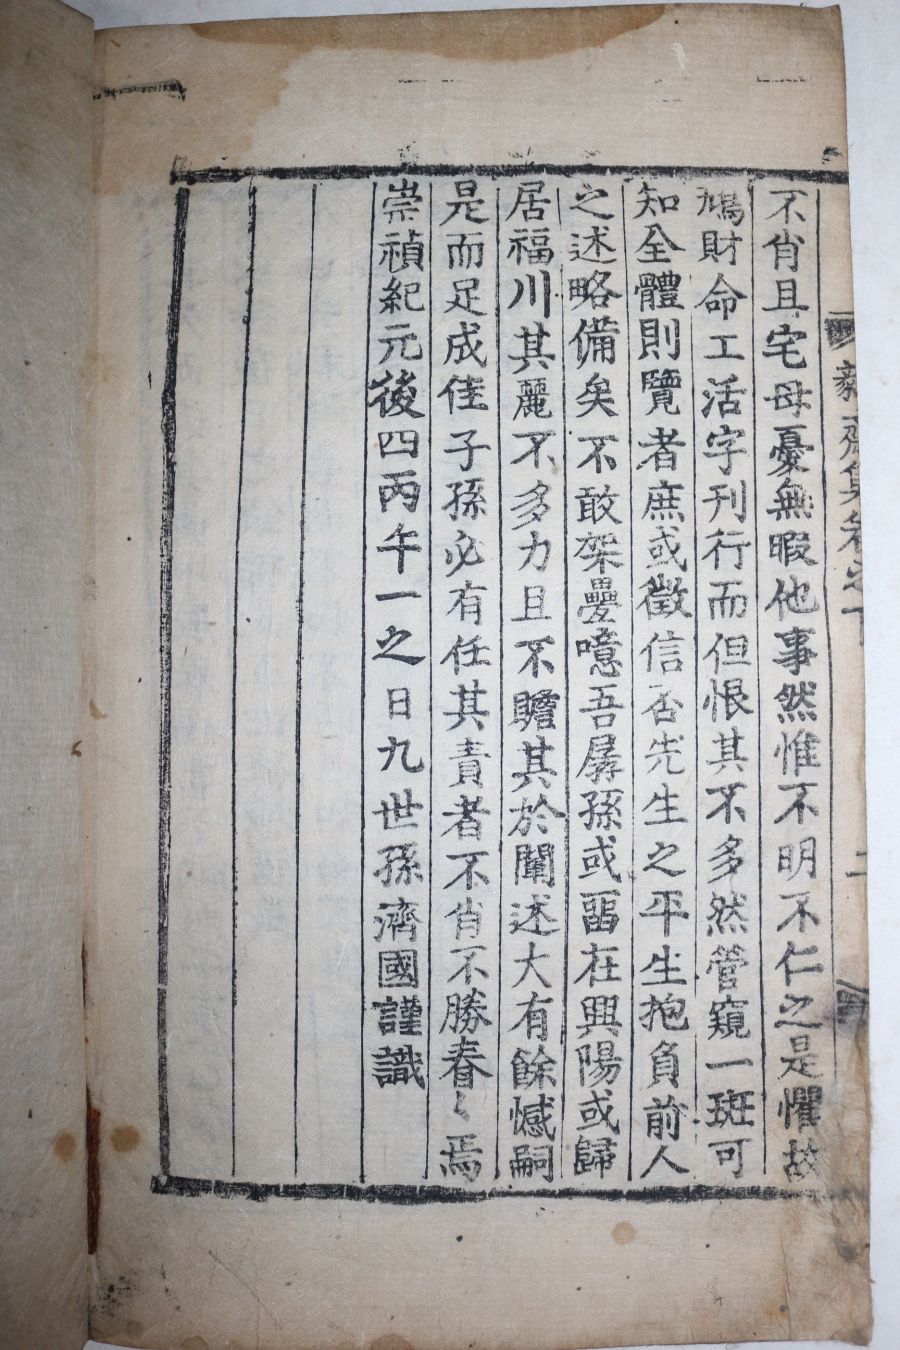 齋集卷之下
二
不肖且宅母憂無暇他事然惟不明不仁之是懼故
鳩財命工活字刊行而但恨其不多然管窺一斑可
知全體則覽者庶或徵信否先生之平生抱負前人
之述略備矣不敢架疊噫吾孱孫或畱在興陽或歸
居福川其麗不多力且不贍其於闡述大有餘憾嗣
是而足成佳子孫必有任其責者不肖不勝眷〻焉
崇禎紀元後四丙午一之日九世孫濟國謹識